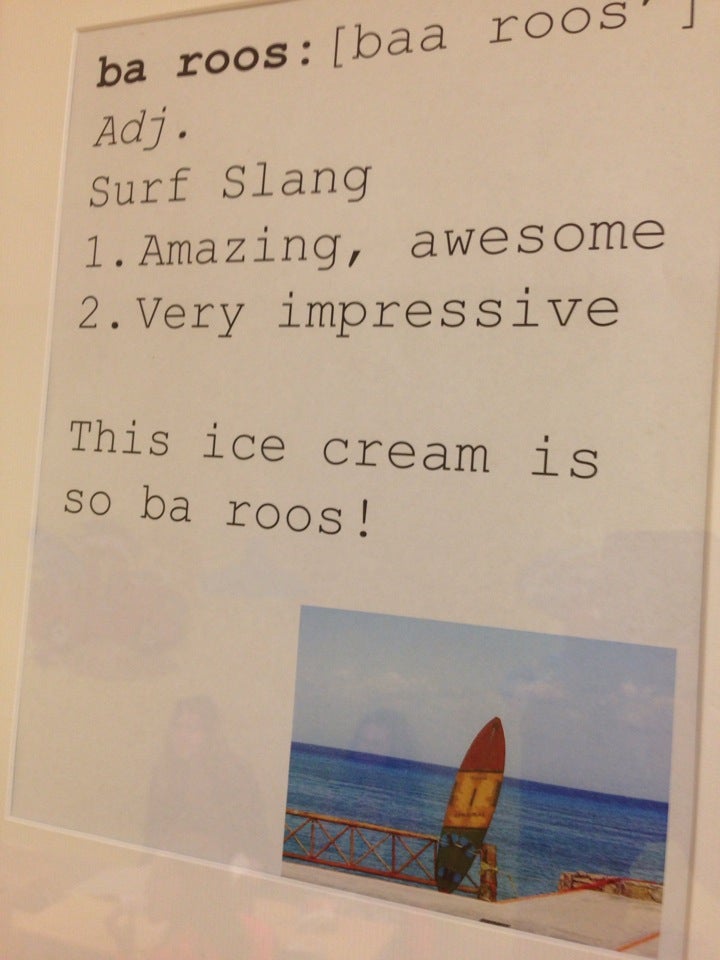 ba roos:[baa roos']
Adj.
Surf Slang
1.Amazing, awesome
2.Very impressive
This ice cream is
so ba roos!